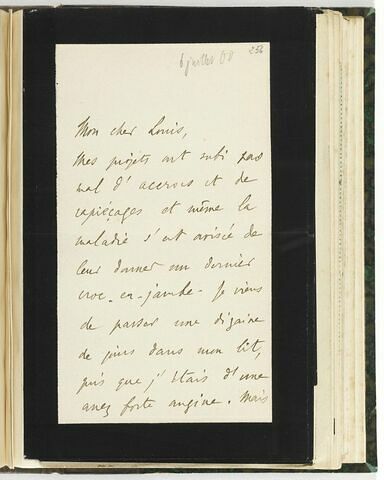 6 juillet 60 256
Mon cher Louis,
Mes projets ont subi pas
mal d'accrocs et de
rapiéçages et même la
maladie s'est avisée de
leur donner un dernier
croc-en-jambe - Je viens
de passer une dizaine
de jours dans mon lit,
pris que j'étais d'une
assez forte angine. Mais